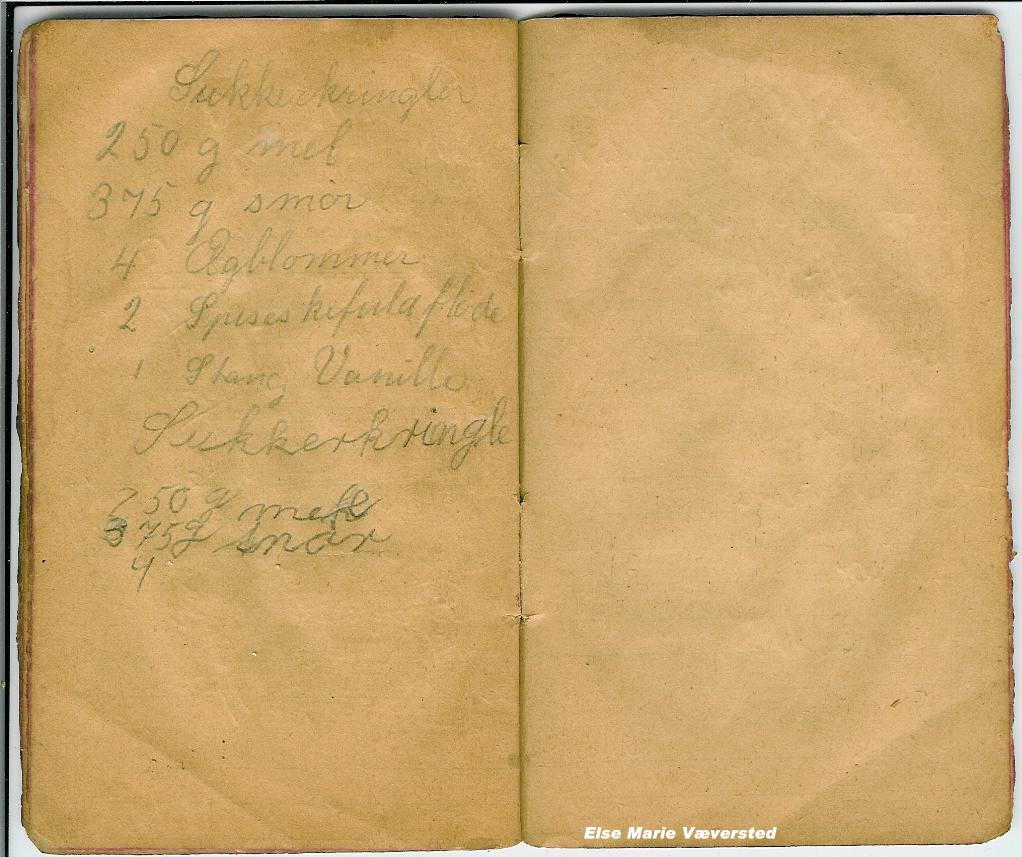 Sukkerkringler
250 g mel
375 g smør
4 Ægblommer
2 Spiseskefuld fløde
1 Stang Vanille
Sukkerkringle
250 g mel
375 g smør
4
Else Marie Væversted